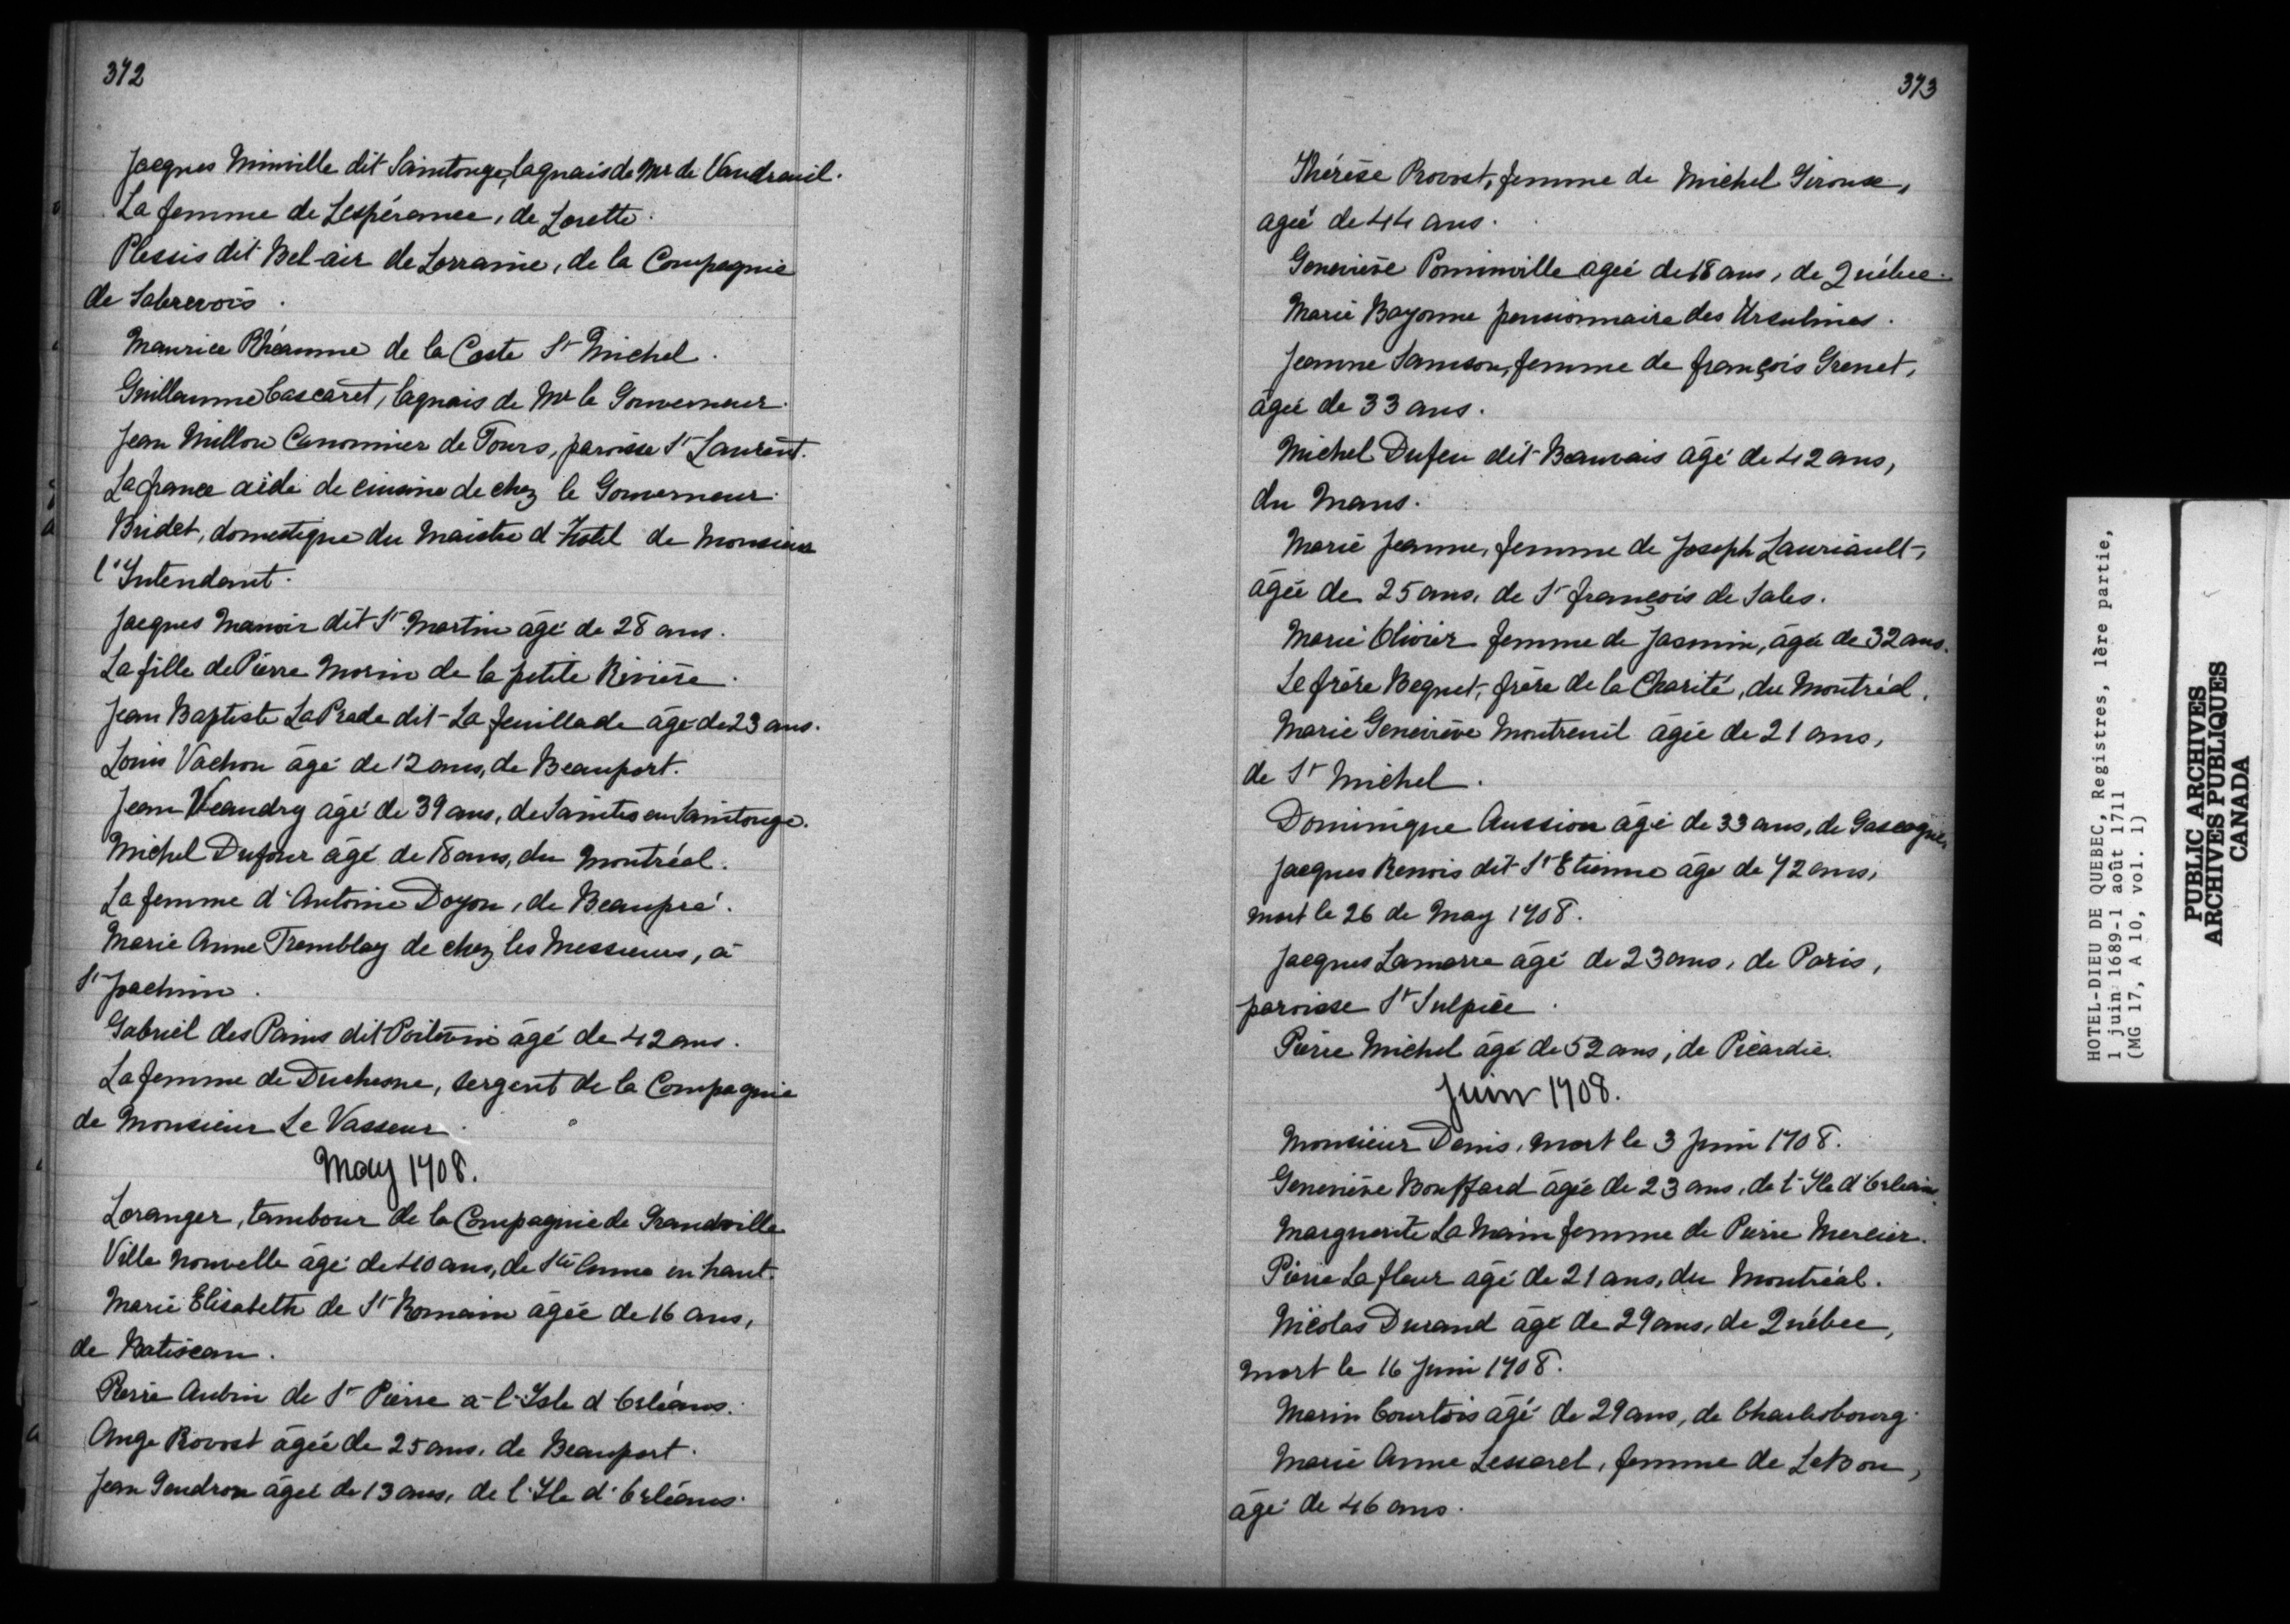 372
Jacques Minville dit Saintonge, laquais de Mr de Vaudreuil.
La femme de Lespérance, de Lorette.
Plessis dit Bel-air de Lorraine, de la Compagnie
de Sabrevois.
Maurice Rhéaume de la Coste St Michel.
Guillaume Cascaret, laquais de Mr le Gouverneur.
Jean Millon Canonnier de Tours, paroisse St Laurent.
Lafrance aide de cuisine de chez le Gouverneur.
Bridet, domestique du Maistre d'Hotel de Monsieur
l'Intendant.
Jacques Manoir dit St Martin âgé de 28 ans.
La fille de Pierre Morin de la petite Rivière.
Jean Baptiste LaPrade dit La feuillade âgé de 23 ans.
Louis Vachon âgé de 12 ans, de Beauport.
Jean Veandry âgé de 39 ans, de Saintes en Saintonge.
Michel Dufour âgé de 18 ans, du Montréal.
La femme d'Antoine Doyon, de Beaupré.
Marie Anne Tremblay de chez les Messieurs, à
St Joachim.
Gabriel des Pains dit Poitevin âgé de 42 ans.
La femme de Duchesne, sergent de la Compagnie
de Monsieur Le Vasseur.
May 1708.
Loranger, tambour de la Compagnie de Grandville
Ville nouvelle âgé de 40 ans, de Ste Anne en haut.
Marie Elisabeth de St Romain âgée de 16 ans,
de Batiscan.
Pierre Aubin de St Pierre à l'Isle d'Orléans.
Ange Rovost âgée de 25 ans, de Beauport.
Jean Gendron âgée de 13 ans, de l'Ile d'Orléans.
373
Thérèse Provost, femme de Michel Giroux,
agée de 44 ans.
Geneviève Pominville agée de 18 ans, de Québec.
Marie Bayonne pensionnaire des Ursulines.
Jeanne Samson, femme de françois Grenet,
âgée de 33 ans.
Michel Dufeu dit Beauvais âgé de 42 ans,
du Mans.
Marie Jeanne, femme de Joseph Lauriault,
âgée de 25 ans, de St françois de Sales.
Marie Olivier femme de Jasmin, âgée de 32 ans.
Le frère Bequet, frère de la Charité, du Montréal.
Marie Geneviève Montreuil âgée de 21 ans,
de St Michel.
Dominique Aussion âgé de 33 ans, de Gascogne.
Jacques Renois dit St Etienne âgé de 72 ans,
mort le 26 de May 1708.
Jacques Lamarre âgé de 23 ans, de Paris,
paroisse St Sulpice.
Pierre Michel âgé de 52 ans, de Picardie.
Juin 1708.
Monsieur Denis, mort le 3 Juin 1708.
Geneviève Bouffard âgée de 23 ans, de l'Ile d'Orléans.
Marguerite La Main femme de Pierre Mercier.
Pierre Lafleur âgé de 21 ans, du Montréal.
Nicolas Durand âgé de 29 ans, de Québec,
mort le 16 Juin 1708.
Marin Courtois âgé de 29 ans, de Charlesbourg.
Marie Anne Lessard, femme de LeBon,
âgé de 46 ans.
HOTEL-DIEU DE QUEBEC, Registres, 1ère partie,
1 juin 1689-1 août 1711
(MG 17, A 10, vol. 1)
PUBLIC ARCHIVES
ARCHIVES PUBLIQUES
CANADA